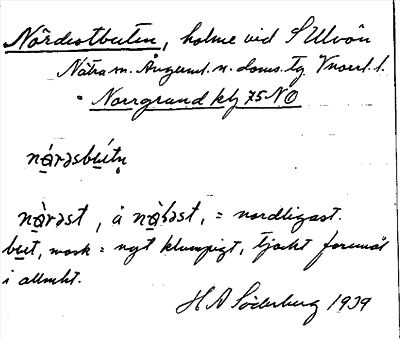 Nördostbuten, holme vid S Ulvön
Nätra sn. Ångerml. n. doms. tg. Vnorrl. l.
Norrgrund kbl 75 NO
nɑ́rəsbu̲tn̥
nɑ̀rəst, å nɑ̀bəst, = nordligast.
but, mask = ngt klumpigt, tjockt föremål
i allmht.
H A Söderberg 1939